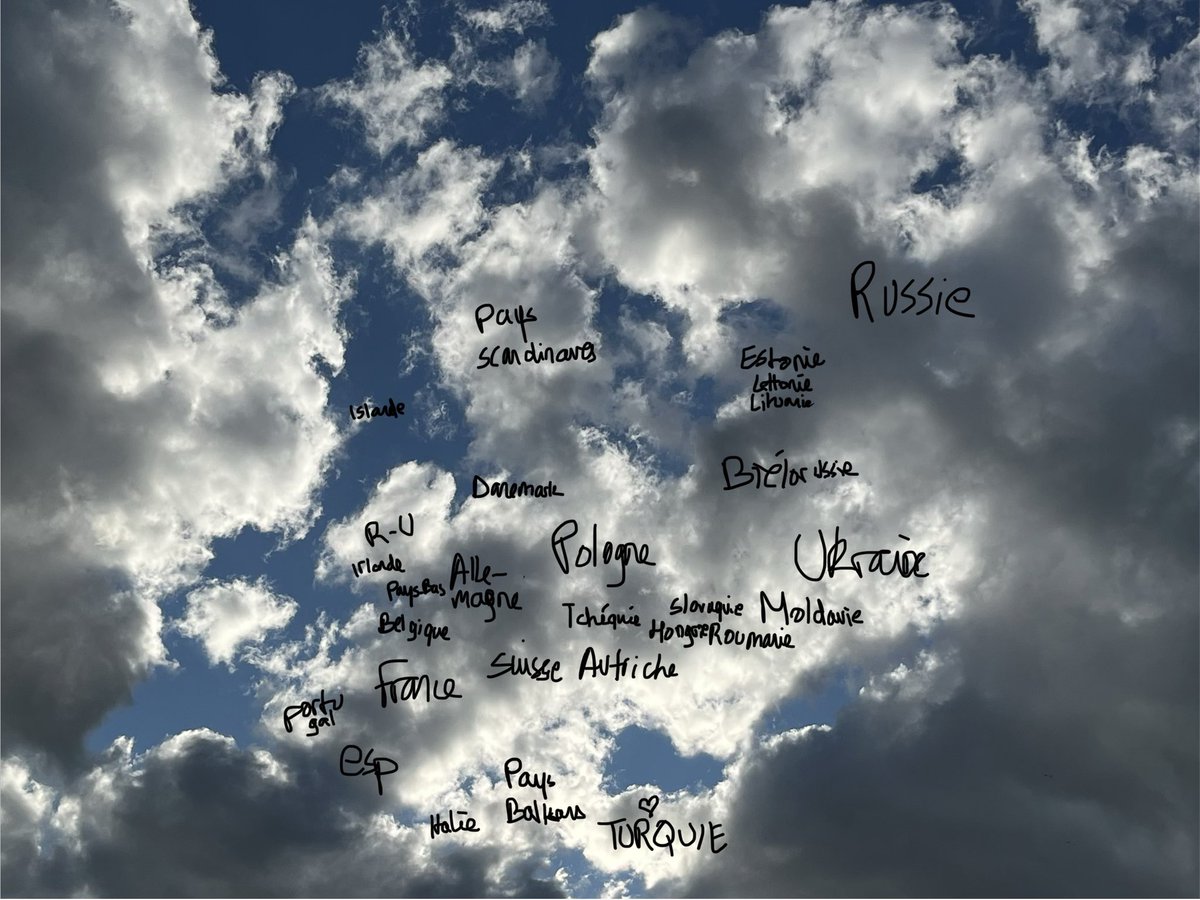 Russie
Pays
scandinaves
Estonie
Lettonie
Lituanie
Islande
Biélorussie
Danemark
R-U
Pologne
Ukraine
Irlande
Alle-
magne
PaysBas
Tchéquie
Slovaquie
Moldavie
Belgique
Hongrie
Roumanie
Suisse
Autriche
France
Portu
gal
esp
Pays
Balkans
Italie
TURQUIE